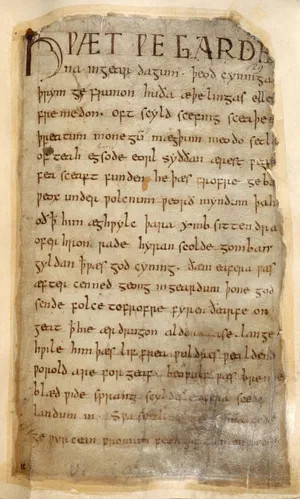 HǷÆT ǷE GARDE
na ingear dagum · þeod cyninga
þrym ge frunon huða æþelingas elle
fremedon. oft scyld scefing sceaþe
þreatum monegū mægþum meodo setla
of teah egsode eorl syððan ærest ƿear
fea sceaft funden he þæs frofre geba
ƿeox under ƿolcnum ƿeorð myndum þah
oðꝥ him æghƿylc þara ymb sittendra
ofer hron rade hyran scolde gomban
gyldan ꝥ ƿæs god cyning. ðæm eafera ƿæs
æfter cenned geong ingeardum þone god
sende folce tofrofre fyren ðearfe on
geat ꝥ hie ær drugon aldor ase. lange
hƿile him þæs lif frea ƿuldres ƿealdend
ƿorold are for geaf. beoƿulf ƿæs breme
blæd ƿide sprang scyldes eafera scede
landum in. Sƿa sceal
ge ƿyrcean fromum feoh